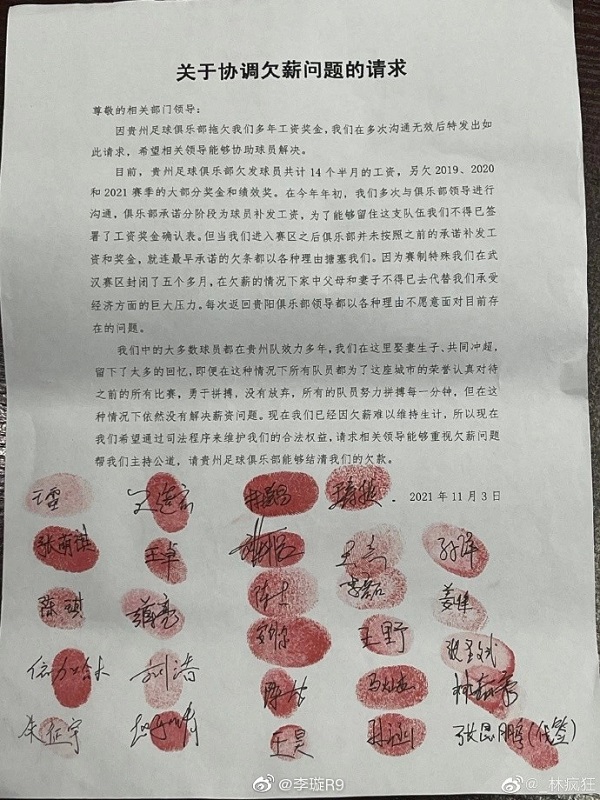 关于协调欠薪问题的请求
尊敬的相关部门领导：
因贵州足球俱乐部拖欠我们多年工资奖金，我们在多次沟通无效后特发出如
此请求，希望相关领导能够协助球员解决。
目前，贵州足球俱乐部欠发球员共计14个半月的工资，另欠2019、2020
和2021赛季的大部分奖金和绩效奖。在今年年初，我们多次与俱乐部领导进行
沟通，俱乐部承诺分阶段为球员补发工资，为了能够留住这支队伍我们不得已签
署了工资奖金确认表。但当我们进入赛区之后俱乐部并未按照之前的承诺补发工
资和奖金，就连最早承诺的欠条都以各种理由搪塞我们。因为赛制特殊我们在武
汉赛区封闭了五个多月，在欠薪的情况下家中父母和妻子不得已去代替我们承受
经济方面的巨大压力。每次返回贵阳俱乐部领导都以各种理由不愿意面对目前存
在的问题。
我们中的大多数球员都在贵州队效力多年，我们在这里娶妻生子、共同冲超，
留下了太多的回忆，即便在这种情况下所有队员都为了这座城市的荣誉认真对待
之前的所有比赛，勇于拼搏，没有放弃，所有的队员努力拼搏每一分钟，但在这
种情况下依然没有解决薪资问题。现在我们已经因欠薪难以维持生计，所以现在
我们希望通过司法程序来维护我们的合法权益，请求相关领导能够重视欠薪问题
帮我们主持公道，请贵州足球俱乐部能够结清我们的欠款。
2021年11月3日
张萌淇 王卓
陈琪
王野
刘涛
朱征宇 王昊 张昆鹏(代签)
@李璇R9
@_林疯狂